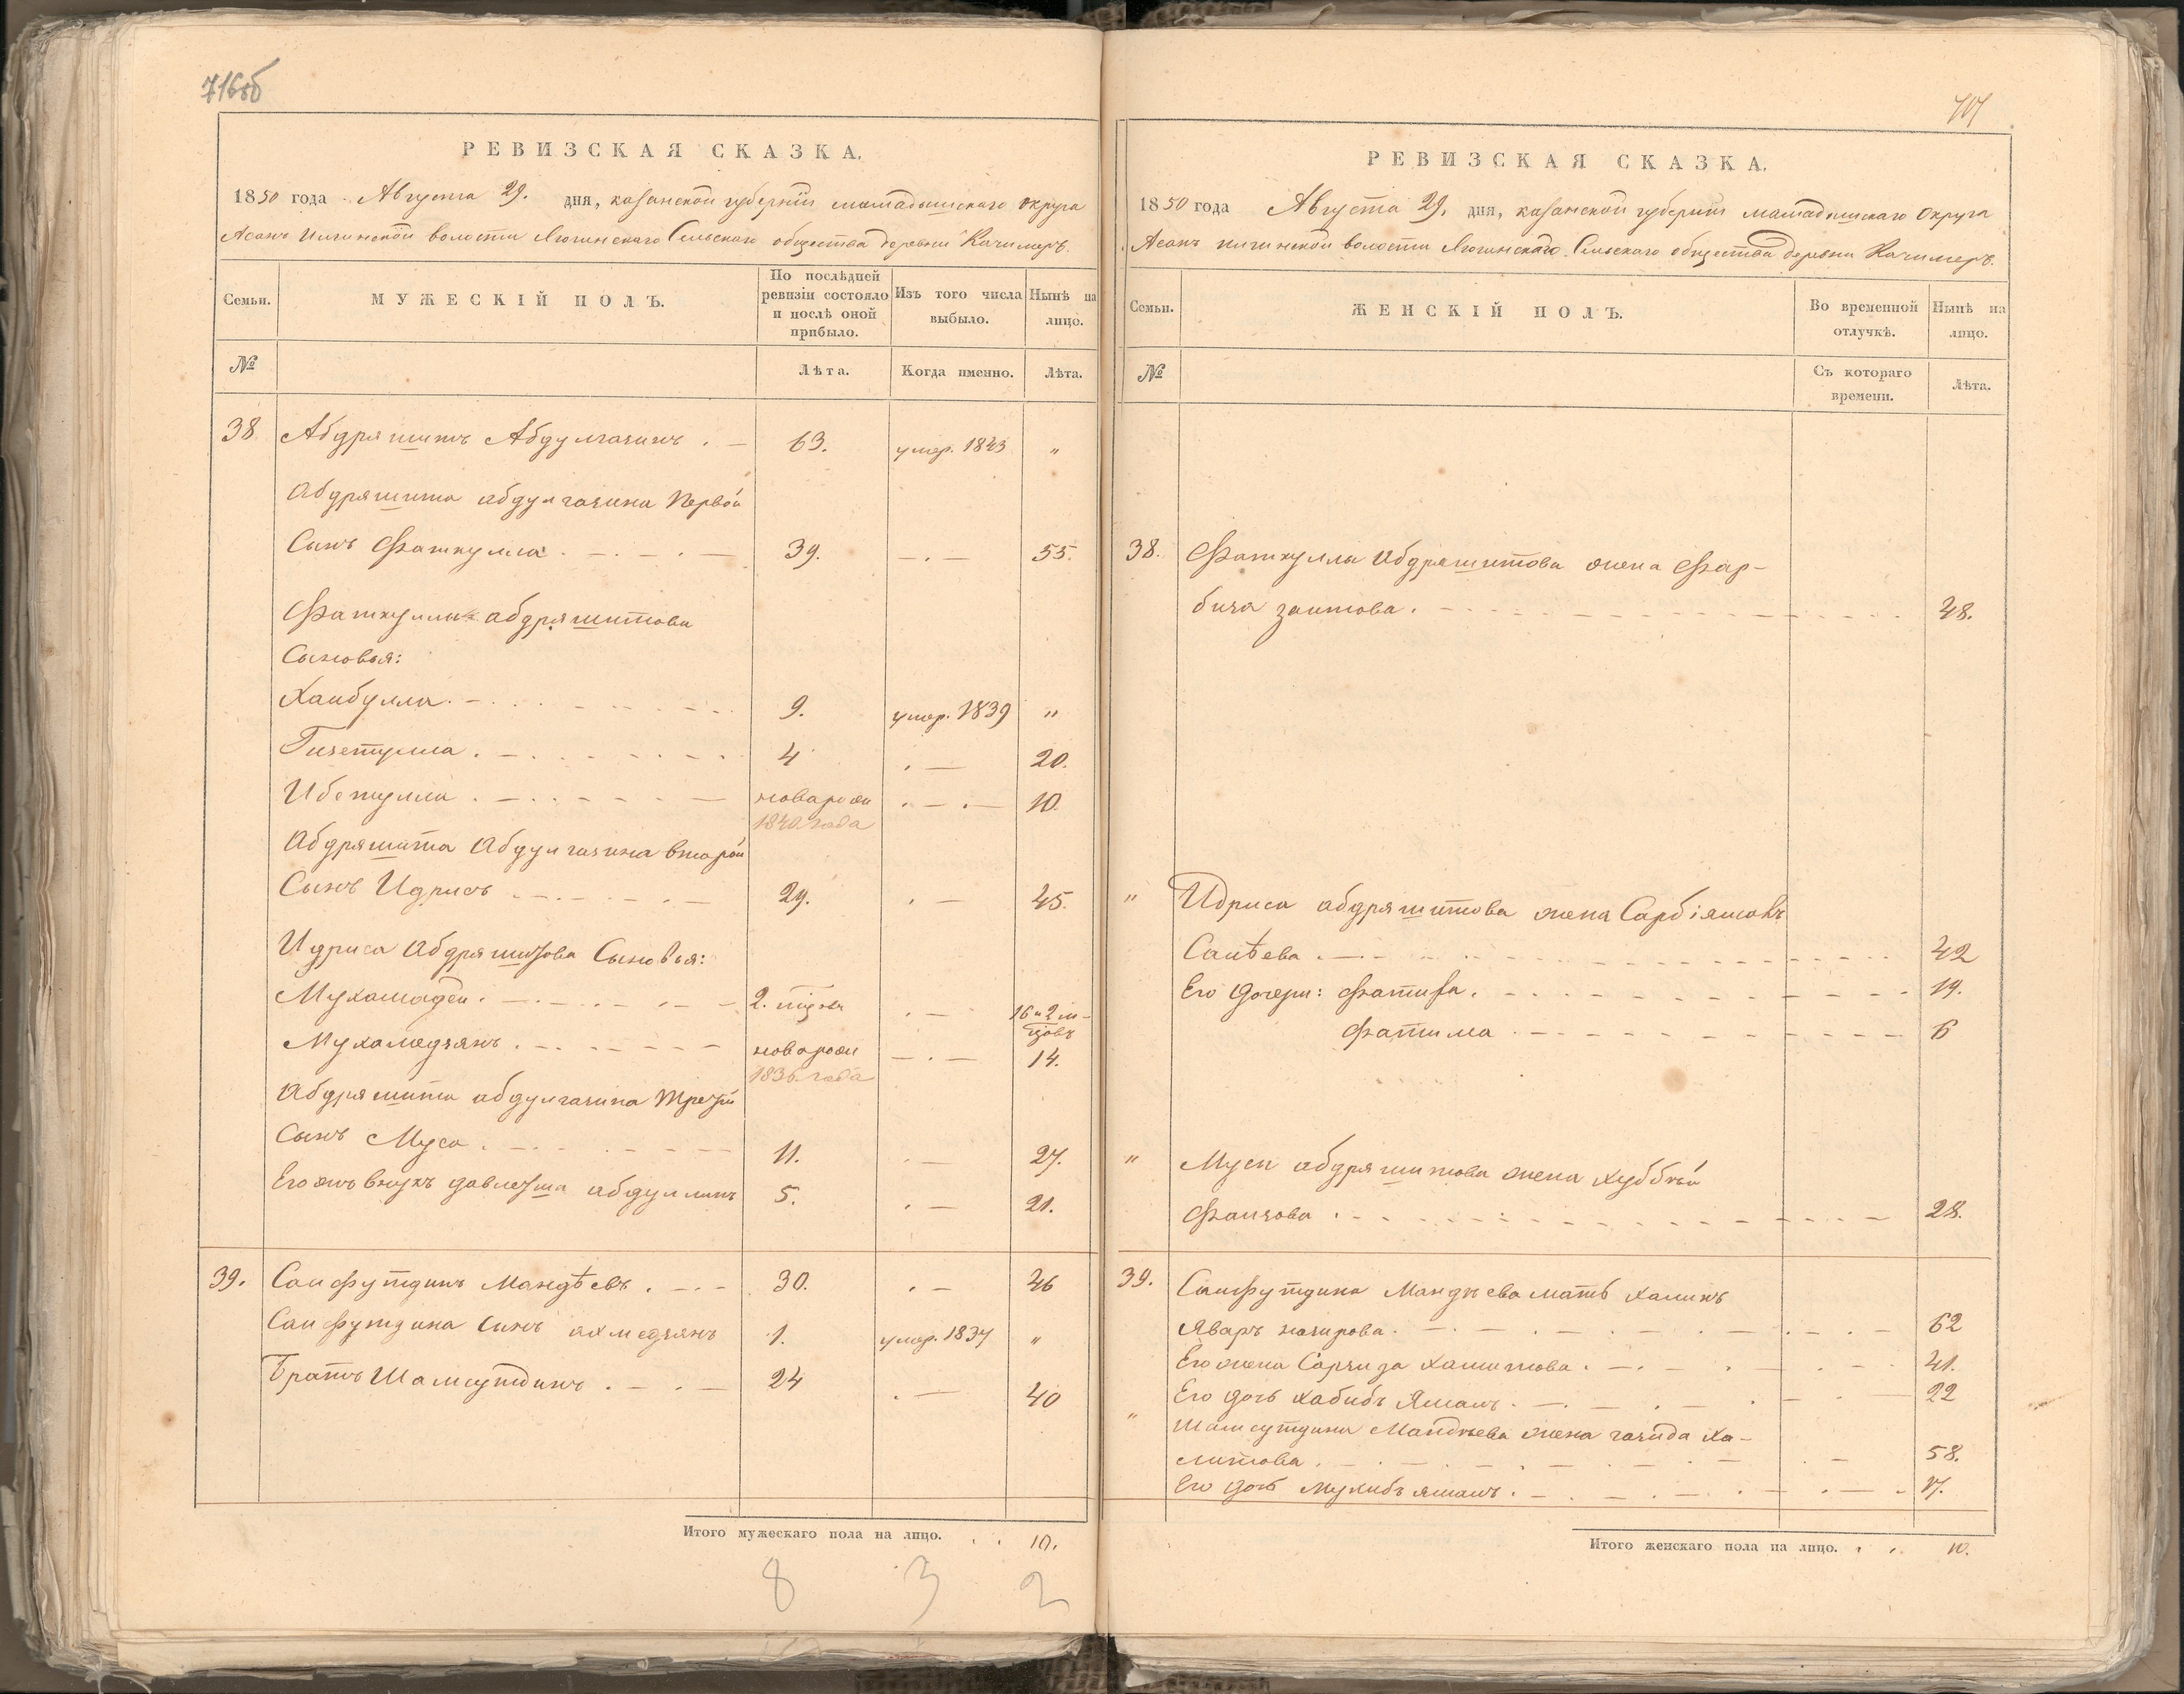 716об
РЕВИЗСКАЯ СКАЗКА.
1850 года Августа 29. дня, казанской губерніи мамадышскаго округа
Асанъ Илгинской волости Сельскаго общества деревни Качимеръ.
Семьи.
МУЖЕСКІЙ ПОЛЪ.
По послѣдней ревизіи состояло и послѣ оной прибыло.
Изъ того числа выбыло.
Нынѣ на лицо.
№
Лѣта.
Когда именно.
Лѣта.
38 Абдряшитъ Абдулгазинъ . — 63. умер. 1843 "
Абдряшита абдулгазина Первой
Сынъ Фаткулла . — . — . — 39. — . — 55.
Фаткуллы абдряшитова
Сыновья:
Хаибулла . — 9. умер. 1839 "
Гизетулла . — 4 . — 20.
Ибетулла . — новарож . — . — 10.
1840 года
Абдряшита Абдулгазина второй
Сынъ Идрисъ . — 29. . — 45.
Идриса Абдряшитова Сыновья:
Мухамадей . — 2. мцовъ . — 16 и 2 м-
цовъ
Мухамедзянъ . — новорож — . — 14.
1836 года
Абдряшита абдулгазина третей
Сынъ Муса . — 11. . — 27.
Его жъ внукъ давлетша абдуллинъ 5. . — 21.
39. Саифутдинъ Мандѣевъ . — . — 30. . — 46
Саифутдина Сынъ ахмедзянъ 1. умер. 1837 "
Братъ Шамсутдинъ . — . — 24 . — 40
Итого мужескаго пола на лицо. . . 10.
8 3 2
717
РЕВИЗСКАЯ СКАЗКА.
1850 года Августа 29. дня, казанской губерніи мамадышскаго Округа
Асанъ илгинской волости Сельскаго общества деревни Качимеръ.
Семьи.
ЖЕНСКІЙ ПОЛЪ.
Во временной отлучкѣ.
Нынѣ на лицо.
№
Съ котораго времени.
Лѣта.
38. Фаткуллы Абдряшитова жена Фар-
биза заитова . — 48.
" Идриса абдряшитова жена Сарбіямалъ
Саитѣева . — 42
Его дочери: фатиха . — 19.
Фатима . — 6
" Мусы абдряшитова жена хуббѣй
Фаизова . — 28.
39. Саифутдина Мандѣева мать халинъ
Яваръ назирова . — 62
Его жена Сарзиза халитова . — 41.
Его дочь хабибъ Ямалъ . — 22
" Шамсутдина Мандѣева жена газида Ха-
литова . — 58.
Его дочь мухибъ ямалъ . — 17.
Итого женскаго пола на лицо. . . 10.